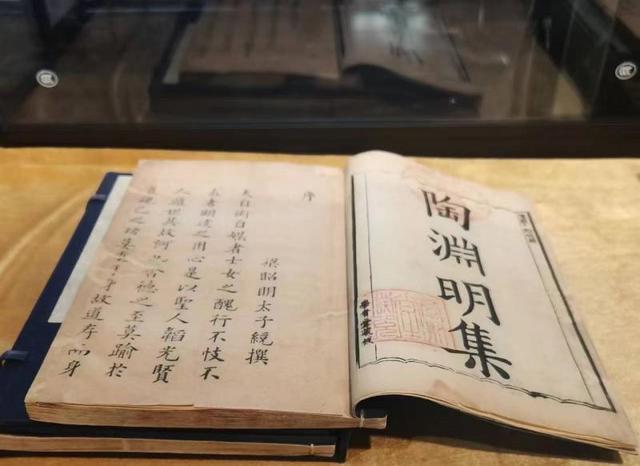 陶淵明集
序
梁昭明太子統撰
夫自衒自媒者士女之醜行不忮不
求者明達之用心是以聖人韜光賢
人遁世其故何也含德之至莫踰於
道親己之切無重於身故道存而身